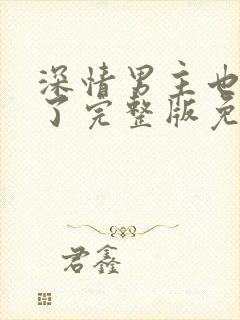 深情男主也
了完整版免
君鑫